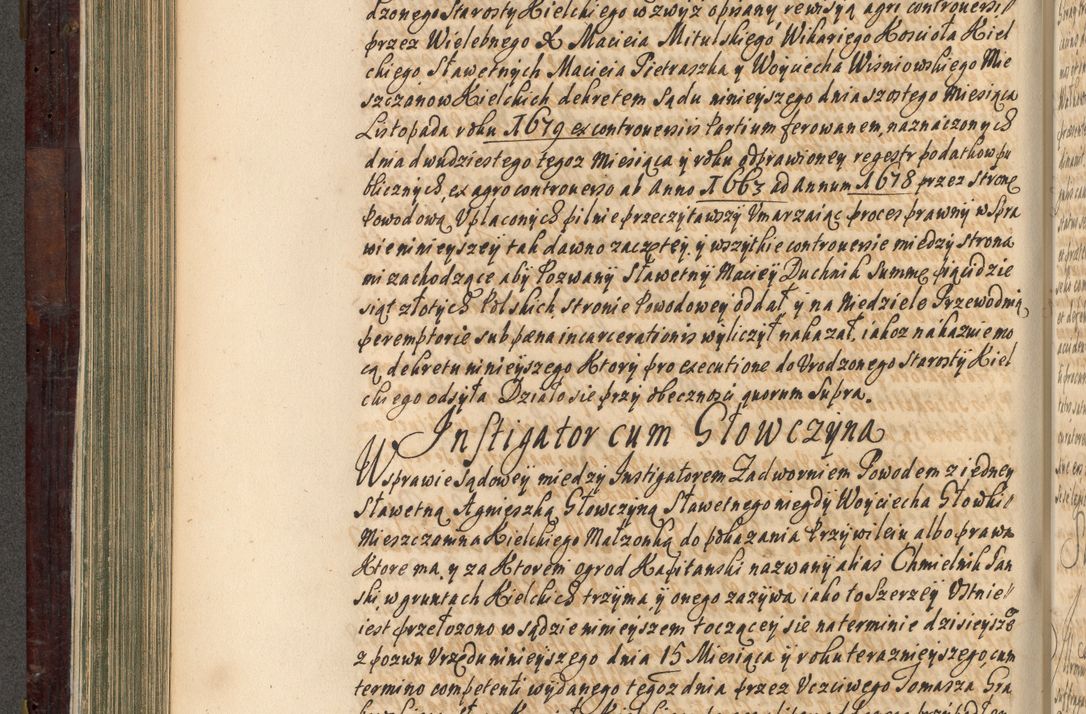 dzonego Starosty Kielckiego wzwyż opisany rewisyą agri controversi
przez Wielebnego X Macieia Mitulskiego Wikariego Koscioła Kiel
ckiego Sławetnych Macieia Pietraszka y Woyciecha Wisniowskiego Mie
szczanow Kielckich dekretem sądu ninieyszego dnia szostego Miesiąca
Listopada roku 1679 ex controversiis Partium ferowanem, naznaczonych
dnia dwudziestego tegoz Miesiąca y roku odprawioney regestr podatkow pu
blicznych, ex agro controverso ab Anno 1663 ad annum 1678 przez stronę
Powodową Vpłaconych pilnie przeczytawszy Vmarzaiąc proces prawny w Spra
wie ninieyszey tak dawno zaczętey, y wszytkie controversie między strona
mi zachodzące aby Pozwany Sławetny Maciey Duchnik Summę pącidzie
siąt złotych Polskich stronie Powodowey oddał, y na Niedziele Przewodnią
peremptorie sub pœna incarcerationis wyliczył nakazał, iakoz nakazuie mo
cą dekretu ninieyszego Ktory pro executione do Vrodzonego Starosty Kiel
ckiego odsyła Działo sie przy obecznosci quorum Supra.
Instigator cum Głowczyna
W sprawie sądowey miedzy Instigatorem Zadwornie​m Powodem z iedney
Sławetną Agnieszką Głowczyną Sławetnego niegdy Woyciecha Głowki
Mieszczanina Kielckiego Małzonką do pokazania Przywileiu albo prawa
Ktore ma, y za Ktorem ogrod Kapitanski nazwany alias Chmielnik Pan
ski w gruntach Kielckich trzyma, y onego zazywa iako to Szerzey Vstnie
iest przełozono w sądzie ninieyszem toczącey sie na terminie dzisieyszē
z pozwu Vrzędu ninieyszego dnia 15 Miesiąca y roku teraznieyszego, cum
termino competenti wydanego tegoz dnia przez Vczciwego Tomasza Gra